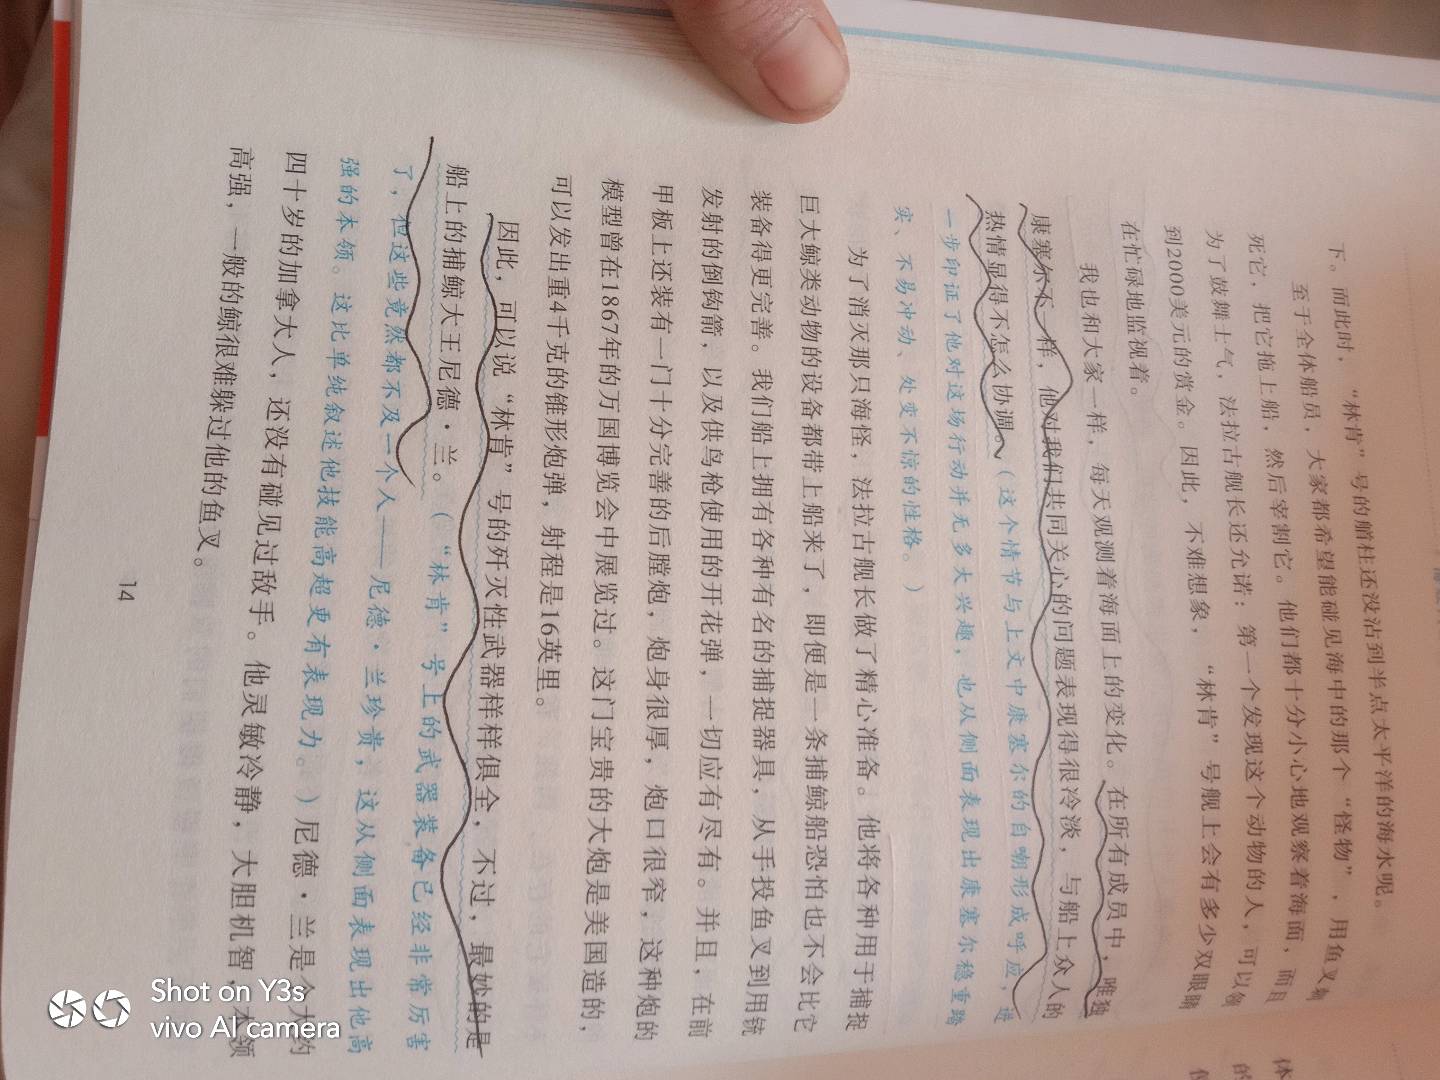 下。而此时，“林肯”号的艏柱还没沾到半点太平洋的海水呢。
至于全体船员，大家都希望能碰见海中的那个“怪物”，用鱼叉
死它，把它拖上船，然后宰割它。他们都十分小心地观察着海面，而且
为了鼓舞士气，法拉古舰长还允诺：第一个发现这个动物的人，可以
到2000美元的赏金。因此，不难想象，“林肯”号舰上会有多少双眼睛
在忙碌地监视着。
我也和大家一样，每天观测着海面上的变化。在所有成员中，唯独
康塞尔不一样，他对我们共同关心的问题表现得很冷淡，与船上众人的
热情显得不怎么协调。（这个情节与上文中康塞尔的自嘲形成呼应，进
一步印证了他对这场行动并无多大兴趣，也从侧面表现出康塞尔稳重踏
实、不易冲动、处变不惊的性格。）
为了消灭那只海怪，法拉古舰长做了精心准备。他将各种用于捕捉
巨大鲸类动物的设备都带上船来了，即便是一条捕鲸船恐怕也不会比它
装备得更完善。我们船上拥有各种有名的捕捉器具，从手投鱼叉到用铳
发射的倒钩箭，以及供鸟枪使用的开花弹，一切应有尽有。并且，在前
甲板上还装有一门十分完善的后膛炮，炮身很厚，炮口很窄，这种炮的
模型曾在1867年的万国博览会中展览过。这门宝贵的大炮是美国造的，
可以发出重4千克的锥形炮弹，射程是16英里。
因此，可以说“林肯”号的歼灭性武器样样俱全，不过，最妙的是
船上的捕鲸大王尼德·兰。（“林肯”号上的武器装备已经非常厉害
了，但这些竟然都不及一个人——尼德·兰珍贵，这从侧面表现出他高
强的本领。这比单纯叙述他技能高超更有表现力。）尼德·兰是个大约
四十岁的加拿大人，还没有碰见过敌手。他灵敏冷静，大胆机智，本领
高强，一般的鲸很难躲过他的鱼叉。
14
体
的
Shot on Y3s
vivo AI camera